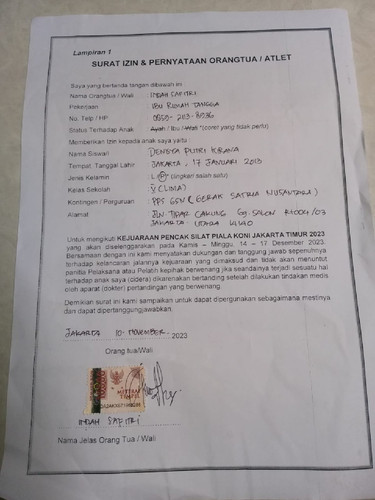 Lampiran 1
SURAT IZIN & PERNYATAAN ORANGTUA / ATLET
Saya yang bertanda tangan dibawah ini
Nama Orangtua / Wali : INDAH SAFITRI
Pekerjaan : IBU RUMAH TANGGA
No. Telp / HP : 0855-2113-8536
Status Terhadap Anak : Ayah / Ibu / Wali *(coret yang tidak perlu)
Memberikan izin kepada anak saya yaitu :
Nama Siswa/i : PUTRI KIRANA
Tempat, Tanggal Lahir : JAKARTA, 17 JANUARI 2013
Jenis Kelamin : L / P *(lingkari salah satu)
Kelas Sekolah : V (LIMA)
Kontingen / Perguruan : PPS GSN (GERAK SATRIA NUSANTARA)
Alamat : JLN. TIPAR CAKUNG GG. SALON RT004/03
JAKARTA UTARA
Untuk mengikuti KEJUARAAN PENCAK SILAT PIALA KONI JAKARTA TIMUR 2023
yang akan diselenggarakan pada Kamis – Minggu, 14 – 17 Desember 2023.
Bersamaan dengan ini kami menyatakan dukungan dan tanggung jawab sepenuhnya
terhadap kelancaran jalannya kejuaraan yang dimaksud dan tidak akan menuntut
panitia Pelaksana atau Pelatih kepihak berwenang jika seandainya terjadi sesuatu hal
terhadap anak saya (cidera) dikarenakan bertanding setelah dilakukan tindakan medis
oleh aparat (dokter) pertandingan yang berwenang.
Demikian surat ini kami sampaikan untuk dapat dipergunakan sebagaimana mestinya
dan dapat dipertanggungjawabkan.
JAKARTA 10- NOVEMBER 2023
Orang tua/Wali
METERAI
TEMPEL
INDAH SAFITRI
Nama Jelas Orang Tua / Wali